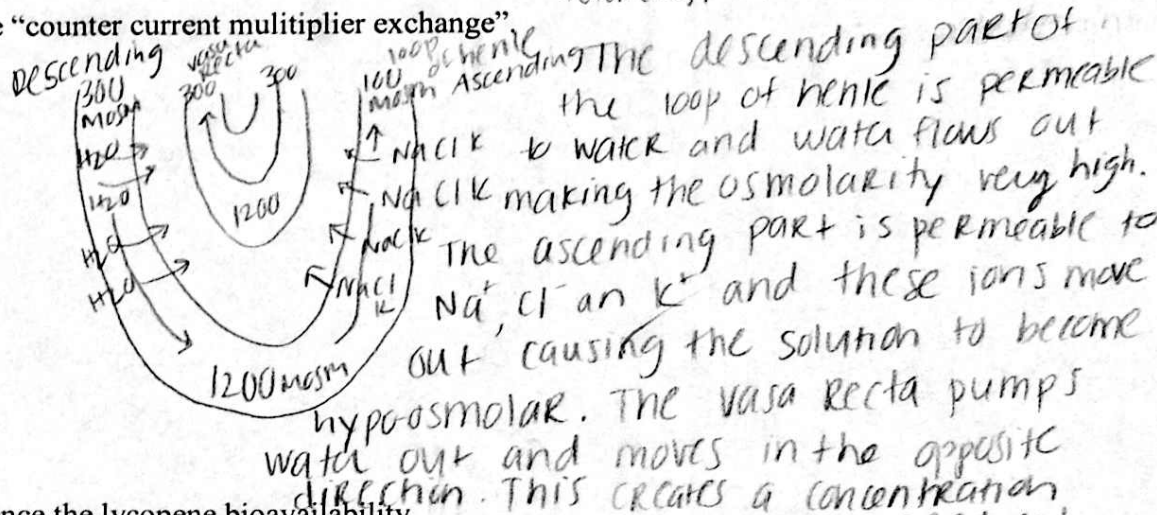 “counter current mulitiplier exchange”
Descending
vasa
Recta
loop
of henle
Ascending
300
mosm
300
300
100
mosm
H2O
H2O
H2O
H2O
1200
NaCl K
NaCl K
NaCl K
NaCl
K
1200 mosm
The descending part of
the loop of henle is permeable
to water and water flows out
making the osmolarity very high.
The ascending part is permeable to
Na+, Cl- an K+ and these ions move
out causing the solution to become
hypoosmolar. The vasa Recta pumps
water out and moves in the opposite
direction. This creates a concentration
the lycopene bioavailability